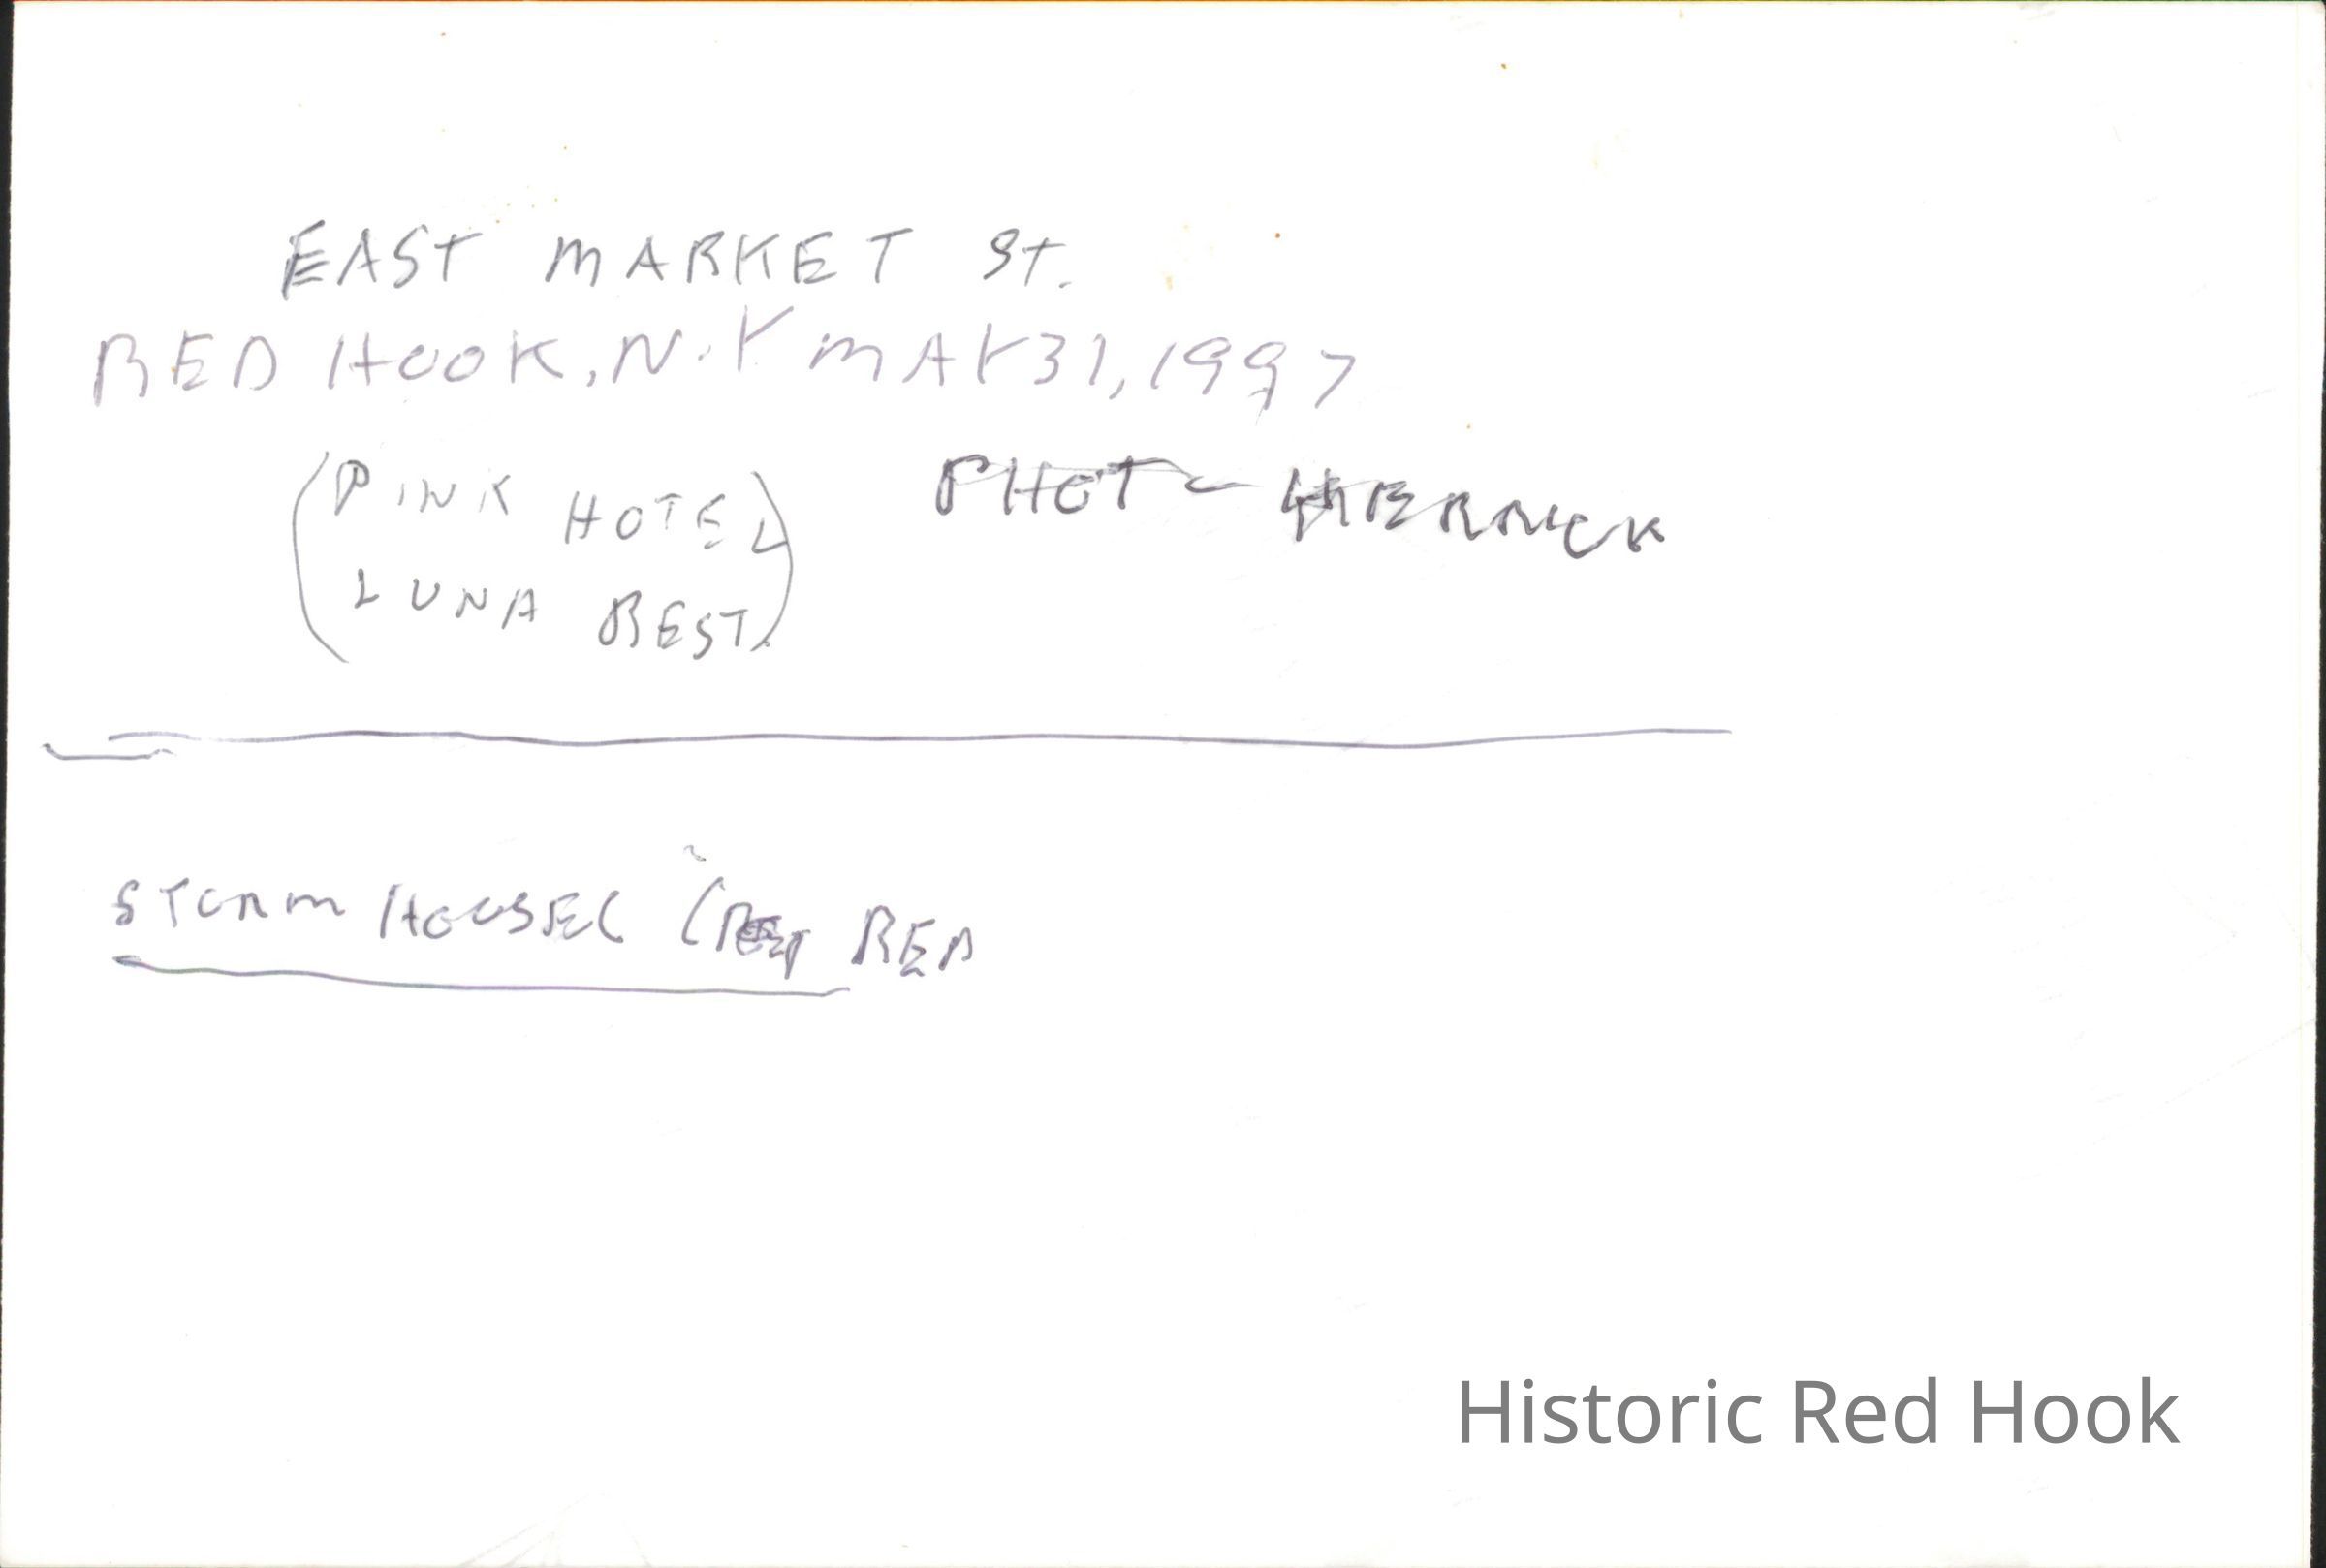 EAST MARKET ST.
RED HOOK, N.Y MAY 31, 1997
(PINK HOTEL PHOTO
LUNA REST.)
STORM HOUSE RED
Historic Red Hook